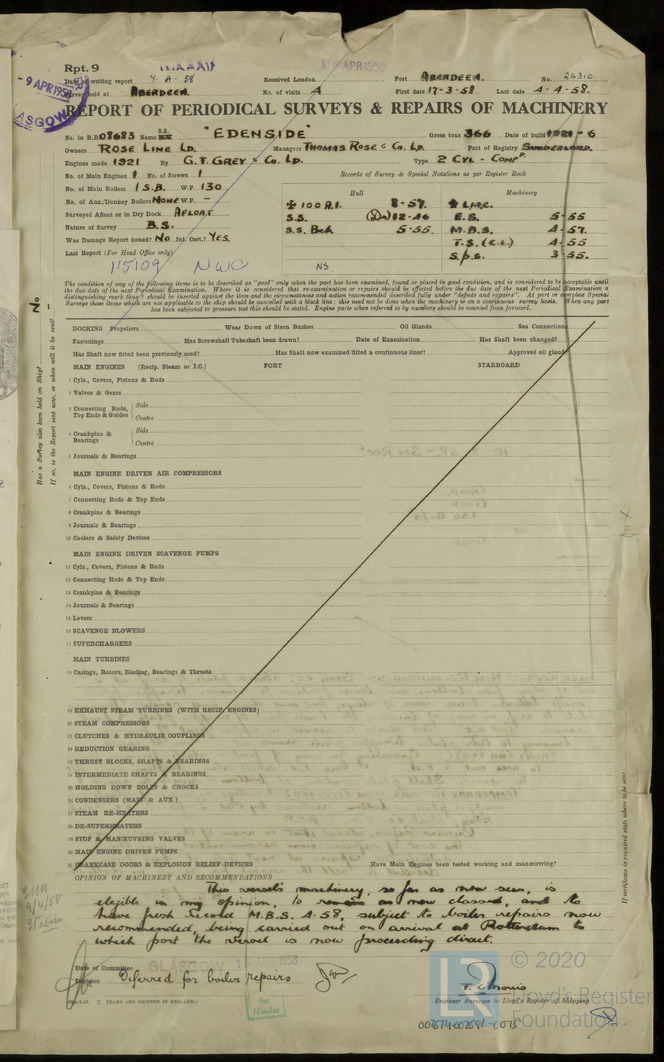 Rpt. 9
Date of writing report 4. A. 58 Received London Port ABERDEEN. No. 24310
Survey held at ABERDEEN. No. of visits 4 First date 17-3-58 Last date 4-4-58.
- 9 APR 1958
REPORT OF PERIODICAL SURVEYS & REPAIRS OF MACHINERY
No. in R.B. 08683 Name S.S. "EDENSIDE" Gross tons 366 Date of build 1921-6
Owners ROSE LINE LD. Managers THOMAS ROSE & CO. LD. Port of Registry SUNDERLAND.
Engines made 1921 By G.T. GREY & CO. LD. Type 2 CYL - COMPD.
No. of Main Engines 1 No. of Screws 1 Records of Survey & Special Notations as per Register Book
No. of Main Boilers 1 S.B. W.P. 130 Hull Machinery
No. of Aux./Donkey Boilers NONE W.P. - 100 A.1. 8-57. L.M.C.
Surveyed Afloat or in Dry Dock AFLOAT S.S. 12-46 E.S. 5-55
Nature of Survey B.S. S.S. 5-55. M.B.S. 4-57.
Was Damage Report issued? NO Int. Cert.? YES. T.S. (C.L.) 4-55
Last Report (For Head Office only) S.P.S. 3-55.
115109 NWC NS
The condition of any of the following items is to be described as "good" only when the part has been examined, found or placed in good condition, and is considered to be acceptable until
the due date of the next Periodical Examination. Where it is considered that re-examination or repairs should be effected before the due date of the next Periodical Examination a
distinguishing mark (thus*) should be inserted against the item and the circumstances and action recommended described fully under "defects and repairs". At part or complete Special
Surveys those items which are not applicable to the ship should be cancelled with a black line; this need not be done when the machinery is on a continuous survey basis. When any part
has been subjected to pressure test this should be stated. Engine parts when referred to by numbers should be counted from forward.
Has a Survey also been held on Ship? No
If so, is the Report sent now, or when will it be sent?
DOCKING Propellers Wear Down of Stern Bushes Oil Glands Sea Connections
Fastenings Has Screwshaft Tubeshaft been drawn? Date of Examination Has Shaft been changed?
Has Shaft now fitted been previously used? Has Shaft now examined/fitted a continuous liner? Approved oil gland?
MAIN ENGINES (Recip. Steam or I.C.) PORT STARBOARD
1 Cyls., Covers, Pistons & Rods
2 Valves & Gears
3 Connecting Rods, Top Ends & Guides Side
Centre
4 Crankpins & Bearings Side
Centre
5 Journals & Bearings
MAIN ENGINE DRIVEN AIR COMPRESSORS
6 Cyls., Covers, Pistons & Rods
7 Connecting Rods & Top Ends
8 Crankpins & Bearings
9 Journals & Bearings
10 Coolers & Safety Devices
MAIN ENGINE DRIVEN SCAVENGE PUMPS
11 Cyls., Covers, Pistons & Rods
12 Connecting Rods & Top Ends
13 Crankpins & Bearings
14 Journals & Bearings
15 Levers
16 SCAVENGE BLOWERS
17 SUPERCHARGERS
MAIN TURBINES
18 Casings, Rotors, Blading, Bearings & Thrusts
19 EXHAUST STEAM TURBINES (WITH RECIP. ENGINES)
20 STEAM COMPRESSORS
21 CLUTCHES & HYDRAULIC COUPLINGS
22 REDUCTION GEARING
23 THRUST BLOCKS, SHAFTS & BEARINGS
24 INTERMEDIATE SHAFTS & BEARINGS
25 HOLDING DOWN BOLTS & CHOCKS
26 CONDENSERS (MAIN & AUX.)
27 STEAM RE-HEATERS
28 DE-SUPERHEATERS
29 STOP & MANŒUVRING VALVES
30 MAIN ENGINE DRIVEN PUMPS
31 CRANKCASE DOORS & EXPLOSION RELIEF DEVICES Have Main Engines been tested working and manœuvring?
If certificate is required state where to be sent.
OPINION OF MACHINERY AND RECOMMENDATIONS
This vessel's machinery, so far as now seen, is
eligible in my opinion, to remain as now classed, and to
have fresh record M.B.S. 4.58, subject to boiler repairs now
recommended, being carried out on arrival at Rotterdam to
which port the vessel is now proceeding direct.
9/4/58
Date of Committee GLASGOW 1958
Decision Deferred for boiler repairs
Engineer Surveyor to Lloyd's Register of Shipping
T. (MADE AND PRINTED IN ENGLAND.)
© 2020
Lloyd's Register
Foundation